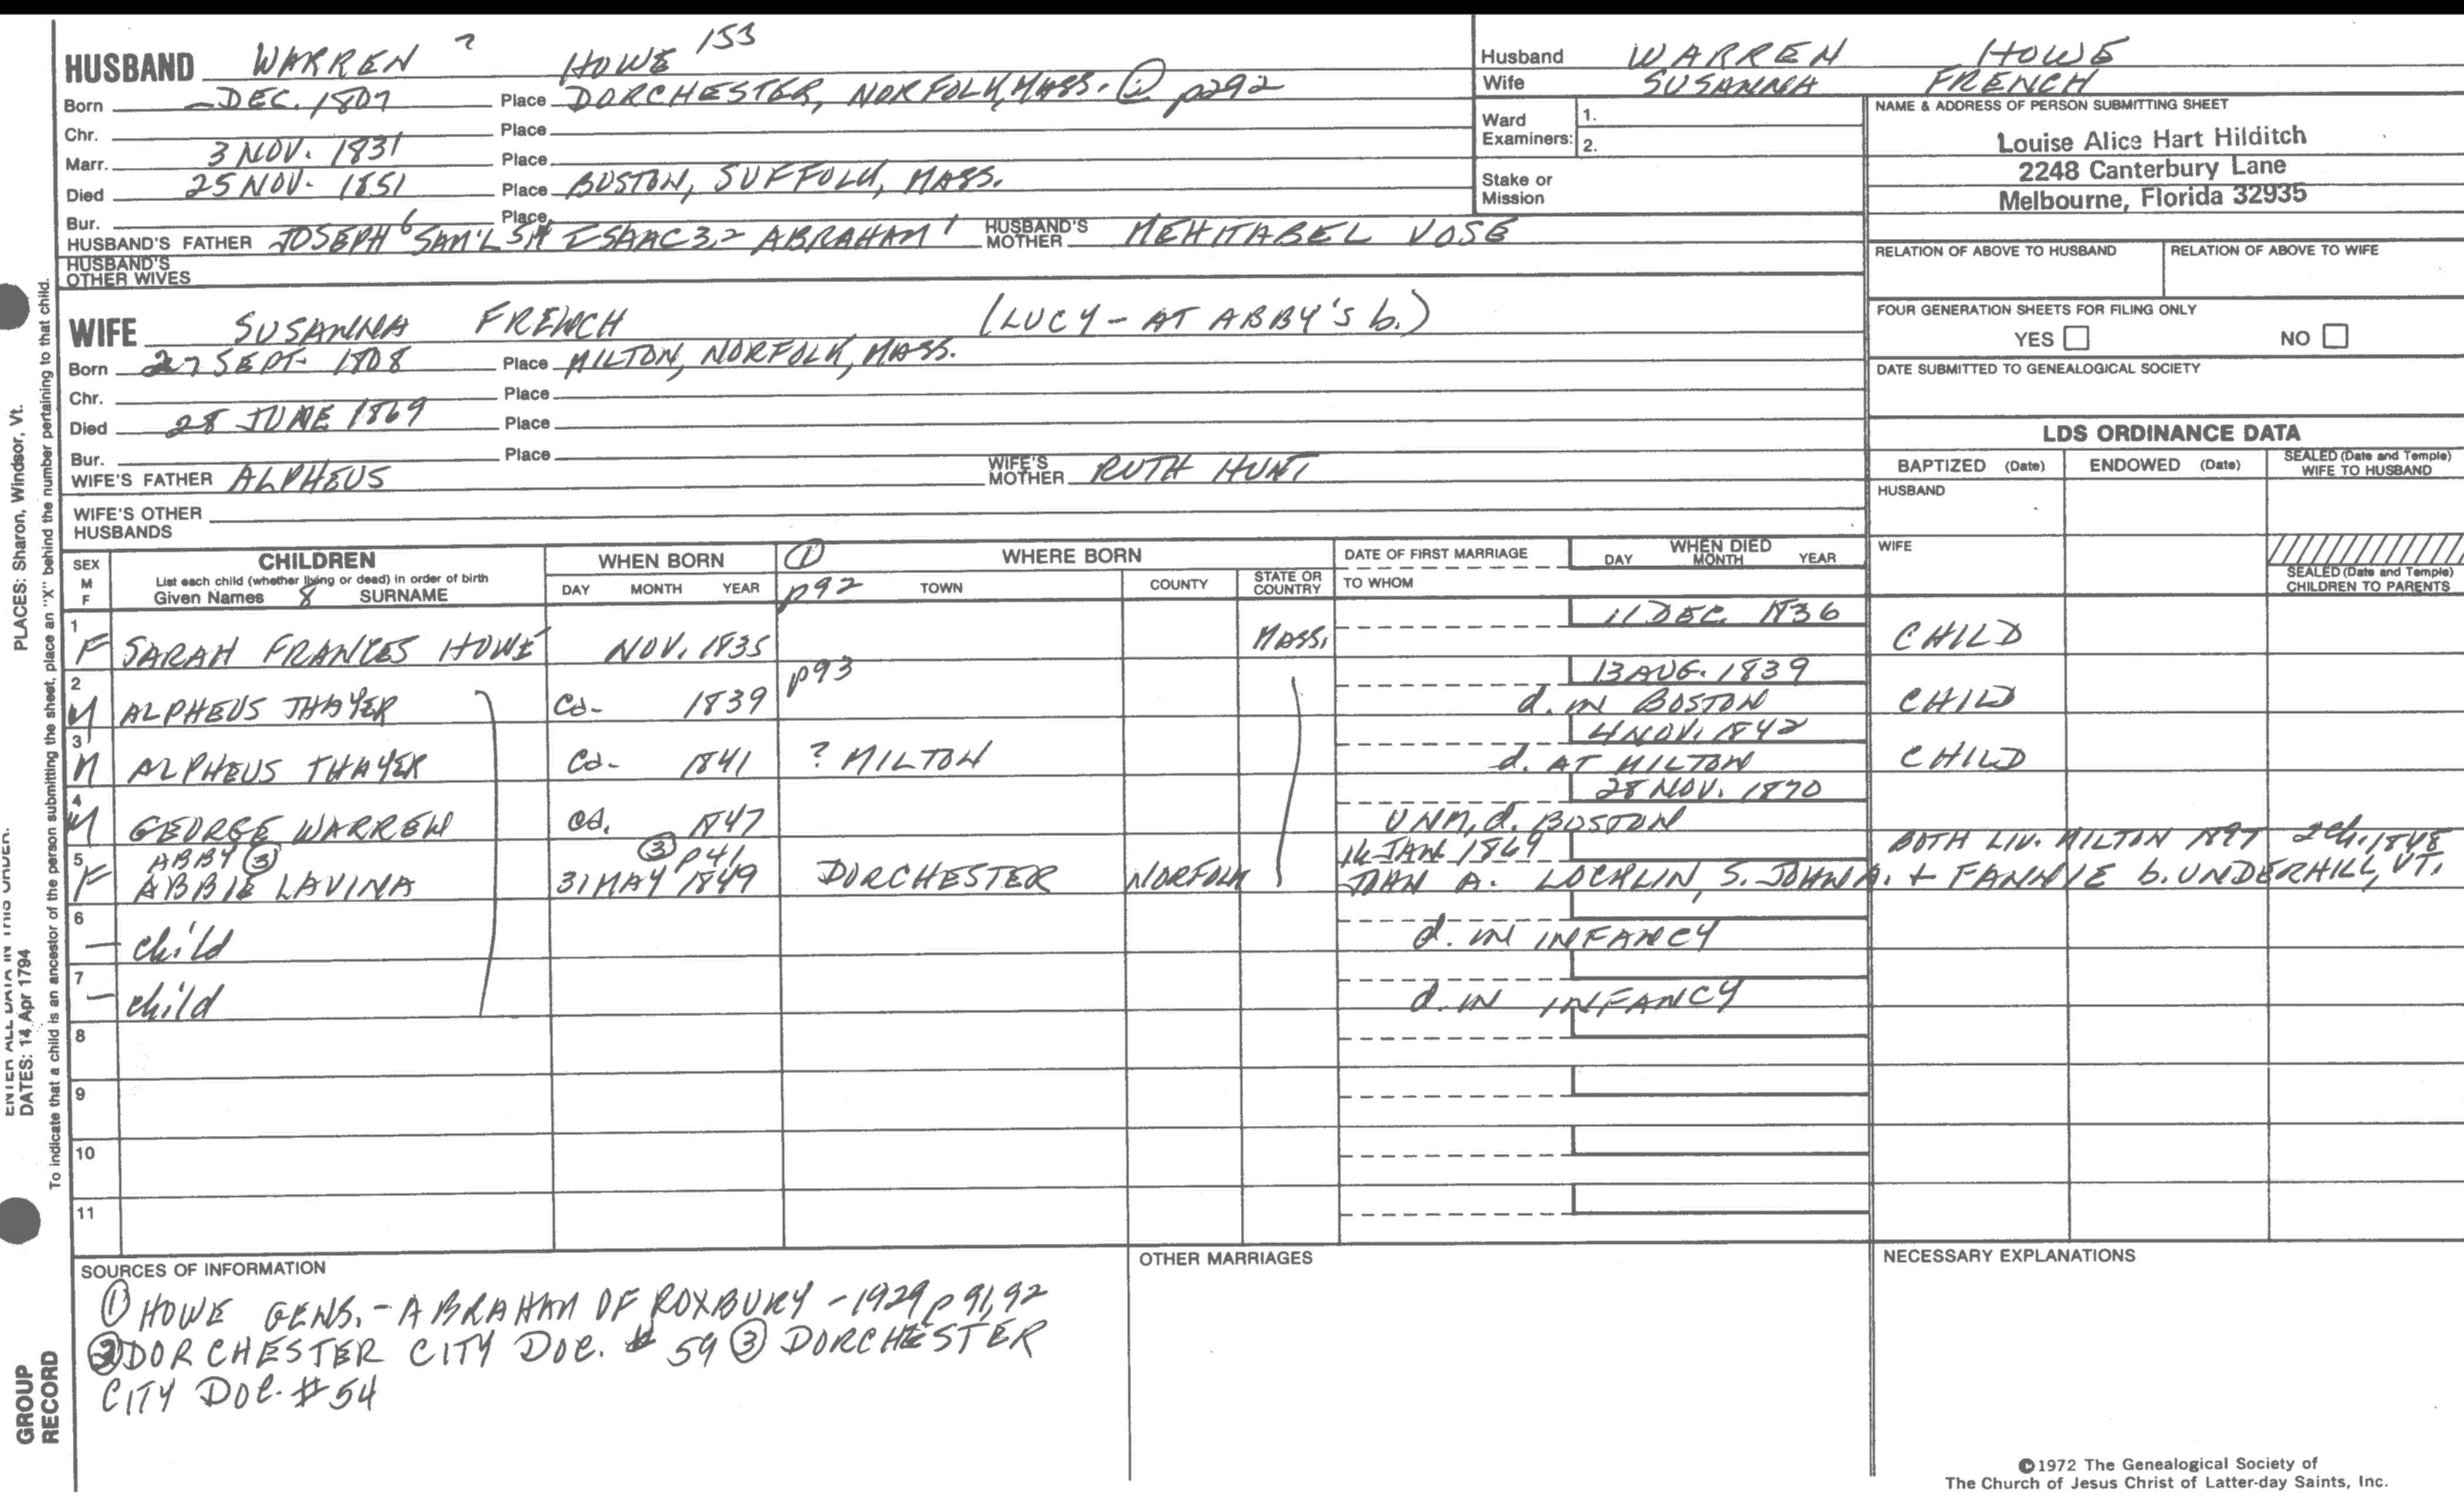 HUSBAND WARREN 7 HOWE 153
Born - DEC. 1807 Place DORCHESTER, NORFOLK, MASS. ② p292
Chr. Place
Marr. 3 NOV. 1831 Place
Died 25 NOV. 1851 Place BOSTON, SUFFOLK, MASS.
Bur. Place
HUSBAND'S FATHER JOSEPH 6 SAM'L 5,4 ISAAC 3,2 ABRAHAM 1 HUSBAND'S MOTHER MEHITABEL VOSE
HUSBAND'S OTHER WIVES
WIFE SUSANNA FRENCH (LUCY - AT ABBY'S b.)
Born 27 SEPT. 1808 Place MILTON, NORFOLK, MASS.
Chr. Place
Died 28 JUNE 1869 Place
Bur. Place
WIFE'S FATHER ALPHEUS WIFE'S MOTHER RUTH HUNT
WIFE'S OTHER HUSBANDS
Husband WARREN HOWE
Wife SUSANNA FRENCH
Ward Examiners: 1.
2.
Stake or Mission
NAME & ADDRESS OF PERSON SUBMITTING SHEET
Louise Alice Hart Hilditch
2248 Canterbury Lane
Melbourne, Florida 32935
RELATION OF ABOVE TO HUSBAND RELATION OF ABOVE TO WIFE
FOUR GENERATION SHEETS FOR FILING ONLY
YES NO
DATE SUBMITTED TO GENEALOGICAL SOCIETY
LDS ORDINANCE DATA
BAPTIZED (Date) ENDOWED (Date) SEALED (Date and Temple) WIFE TO HUSBAND
HUSBAND
WIFE
SEALED (Date and Temple) CHILDREN TO PARENTS
SEX M F
CHILDREN
List each child (whether living or dead) in order of birth
Given Names 8 SURNAME
WHEN BORN
DAY MONTH YEAR
① WHERE BORN
p92 TOWN COUNTY STATE OR COUNTRY
DATE OF FIRST MARRIAGE
TO WHOM
WHEN DIED
DAY MONTH YEAR
1 11 DEC. 1836
F SARAH FRANCES HOWE NOV. 1835 MASS. CHILD
2 p93 13 AUG. 1839
M ALPHEUS THAYER ca. 1839 d. IN BOSTON CHILD
3 4 NOV. 1842
M ALPHEUS THAYER ca. 1841 ? MILTON d. AT MILTON CHILD
4 28 NOV. 1870
M GEORGE WARREN ca. 1847 UNM, d. BOSTON
5 ABBY ③ ③ p41 16 JAN. 1869 BOTH LIV. MILTON 1897 2 Ch. 1848
F ABBIE LAVINA 31 MAY 1849 DORCHESTER NORFOLK JOHN A. LOCHLIN, S. JOHN A. + FANNIE b. UNDERHILL, VT.
6
- child d. IN INFANCY
7
- child d. IN INFANCY
8
9
10
11
SOURCES OF INFORMATION
① HOWE GENS. - ABRAHAM OF ROXBURY - 1929 p 91,92
② DORCHESTER CITY DOC. # 59 ③ DORCHESTER
CITY DOC. # 54
OTHER MARRIAGES
NECESSARY EXPLANATIONS
©1972 The Genealogical Society of
The Church of Jesus Christ of Latter-day Saints, Inc.
PLACES: Sharon, Windsor, Vt.
To indicate that a child is an ancestor of the person submitting the sheet, place an "X" behind the number pertaining to that child.
ENTER ALL DATA IN THIS ORDER:
DATES: 14 Apr 1794
GROUP RECORD